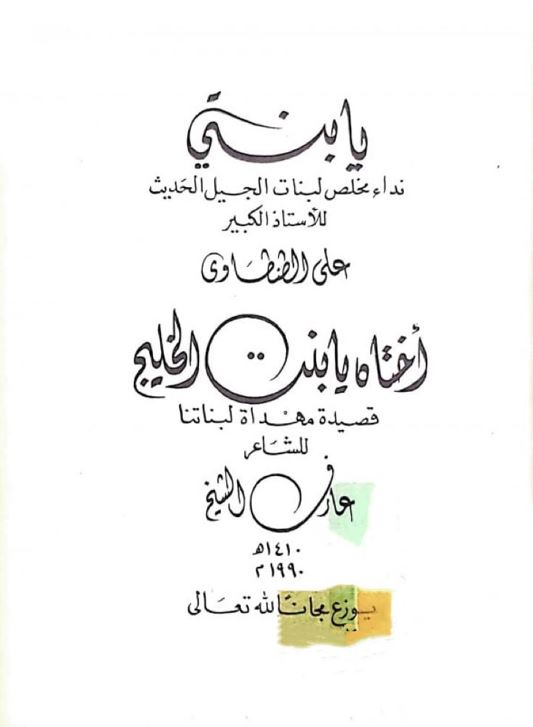 يا بنتي
نداء مخلص لبنات الجيل الحديث
للأستاذ الكبير
على الطنطاوى
أختاه يا بنت الخليج
قصيدة مهداة لبناتنا
للشاعر
عارف الشيخ
١٤١٠هـ
١٩٩٠م
يوزع مجانًا لله تعالى